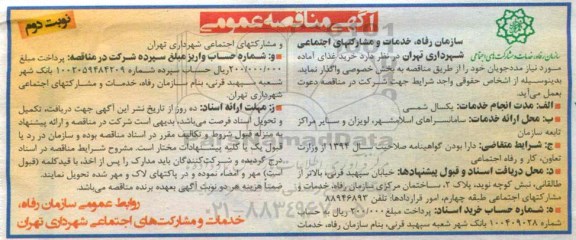 آگهی مناقصه عمومی
نوبت دوم
سازمان رفاه، خدمات و مشارکتهای اجتماعی
سازمان رفاه، خدمات و مشارکتهای اجتماعی
شهرداری تهران در نظر دارد خرید غذای آماده
مورد نیاز مددجویان خود را از طریق مناقصه به بخش خصوصی واگذار نماید.
بدینوسیله از اشخاص حقوقی واجد شرایط جهت شرکت در مناقصه دعوت
بعمل می‌آید.
الف: مدت انجام خدمات: یکسال شمسی
ب: محل ارائه خدمات: سامانسراهای اسلامشهر، لویزان و سایر مراکز
تابعه سازمان
ج: شرایط متقاضی: دارا بودن گواهینامه صلاحیت سال ۱۳۹۴ از وزارت
تعاون، کار و رفاه اجتماعی
د: محل دریافت اسناد و قبول پیشنهادها: خیابان سپهبد قرنی، بالاتر از
طالقانی، نبش کوچه نوید، پلاک ۲، ساختمان مرکزی سازمان رفاه، خدمات و
مشارکتهای اجتماعی طبقه چهارم، امور قراردادها: تلفن ۸۸۹۴۶۸۹۲
ه: شماره حساب خرید اسناد: پرداخت مبلغ ۲۰۰/۰۰۰ ریال به حساب
شماره ۱۰۰۴۰۹۰۲۸ بانک شهر شعبه سپهبد قرنی، بنام سازمان رفاه، خدمات
و مشارکتهای اجتماعی شهرداری تهران
و: شماره حساب واریز مبلغ سپرده شرکت در مناقصه: پرداخت مبلغ
۲۰۰/۰۰۰/۰۰۰ ریال حساب سپرده شماره ۱۰۰۲۰۵۹۴۸۴۲۰۹ بانک شهر
شعبه سپهبد قرنی، بنام سازمان رفاه، خدمات و مشارکتهای اجتماعی
شهرداری تهران
ز: مهلت ارائه اسناد: ده روز از تاریخ نشر این آگهی جهت دریافت، تکمیل
و تحویل اسناد فرصت می‌باشد، بدیهی است شرکت در مناقصه و ارائه پیشنهاد
به منزله قبول شروط و تکالیف مقرر در اسناد مناقصه بوده و سازمان در رد یا
قبول یک یا کلیه پیشنهادات مختار است. مشروح شرایط مناقصه در اسناد
درج گردیده و شرکت‌کنندگان باید مدارک را پس از اخذ، با قیدکلمه (قبول
است) مهر و امضاء نموده و در پاکتهای لاک و مهر شده تحویل نمایند.
ضمنا هزینه هر دو نوبت آگهی بعهده برنده مناقصه می‌باشد.
روابط عمومی سازمان رفاه،
خدمات و مشارکت‌های اجتماعی شهرداری تهران
۰۲۱-۸۸۳۴۹۶۷۰